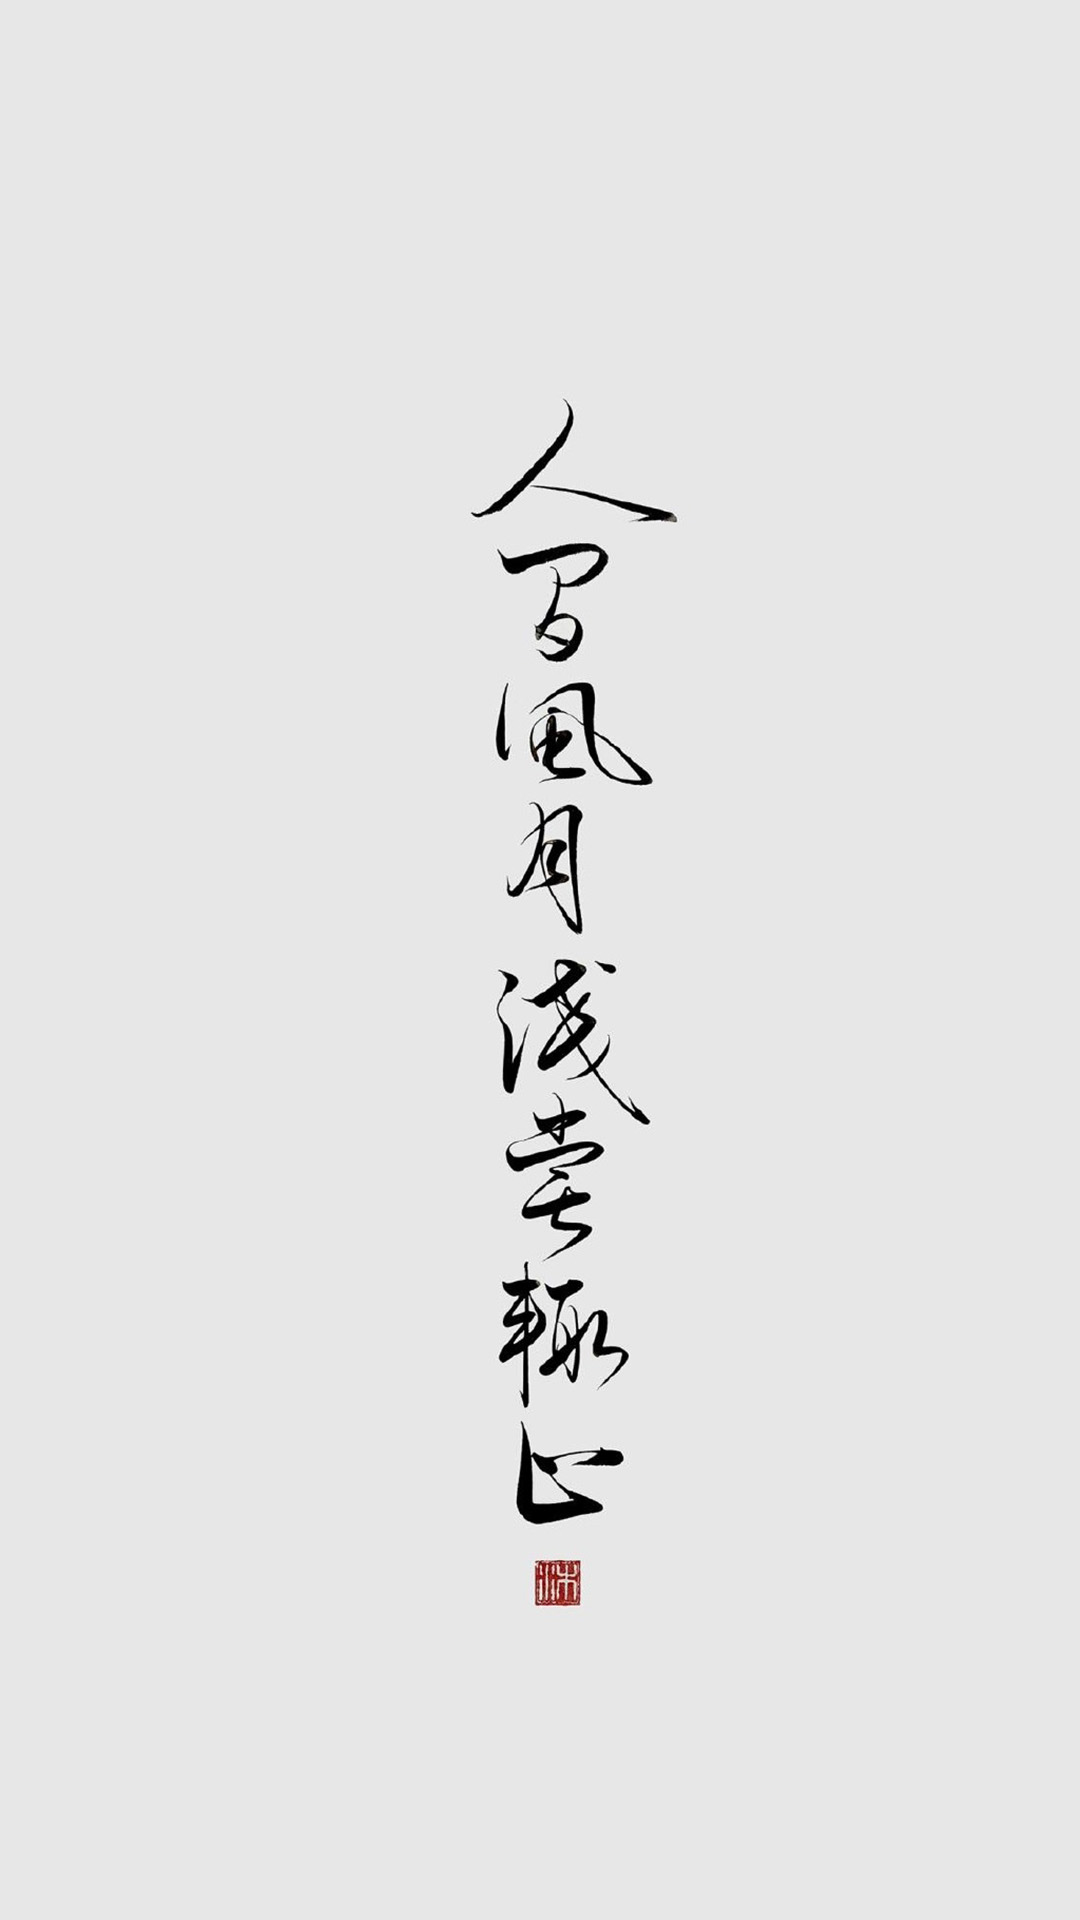 人间風月淺嘗輒止